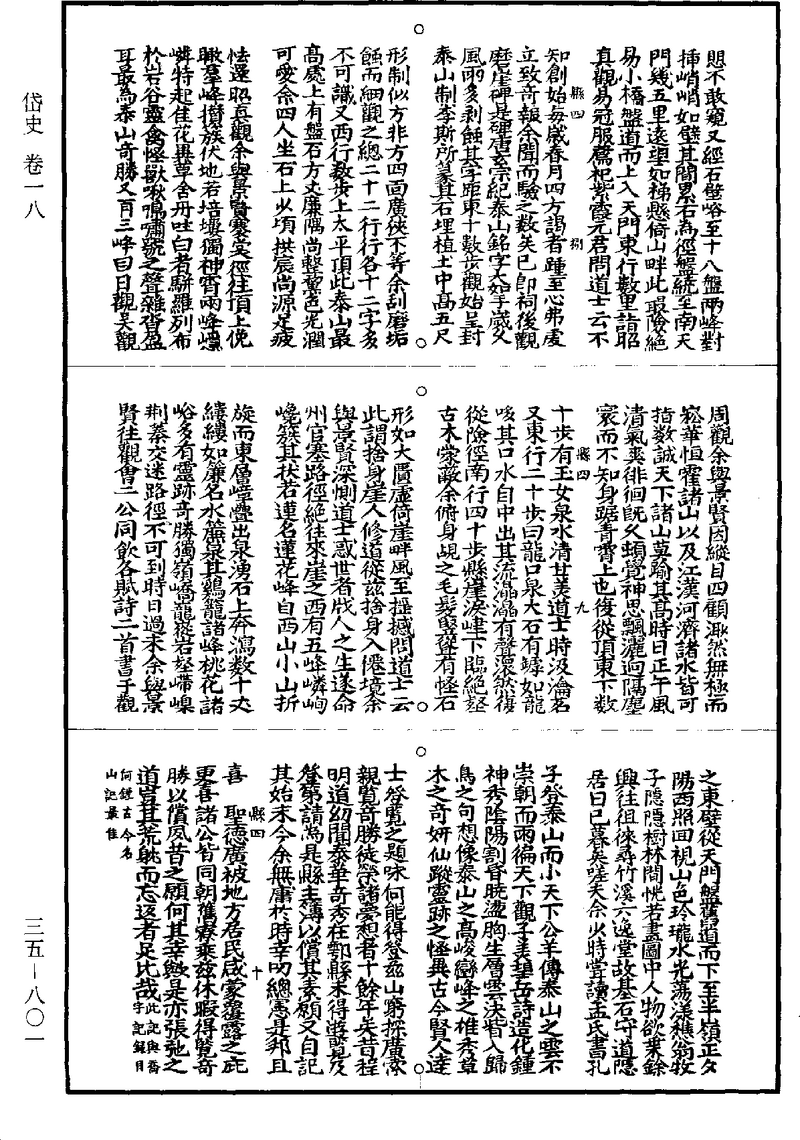 岱史 卷一八
三五―八〇一
思不敢窺又經石壁峪至十八盤兩峰對
揷峭峭如壁其間累石為徑盤繞至南天
門幾五里遠望如梯懸倚山畔此最險絕
易小橋盤道而上入天門東行數里詣昭
真觀易冠服薦祀紫霞元君問道士云不
縣四 捌
知創始每歲春月四方謁者踵至心弗虔
立致奇報余聞而驗之數矣已即祠後觀
磨崖碑是碑唐玄宗紀泰山銘字大如手歲久
風雨多剥蝕其字距東十數步觀始皇封
泰山制李斯所篆其石埋植土中高五尺
形制似方非方四面廣狹不等余刮磨垢
蝕而細觀之總二十二行行各十二字多
不可識又西行數步上太平頂此泰山最
高處上有盤石方丈廉隅尚整黧色光潤
可愛余四人坐石上少頃拱宸尚源足疲
怯還昭真觀余與景賢褰裳徑往頂上俛
瞰羣峰攢蔟伏地若培塿獨神霄兩峰
特起佳花異草含丹吐白者駢羅列布
於岩谷靈禽怪獸啾鳴嘯號之聲雜沓盈
耳最為泰山奇勝又有三峰曰日觀吴觀
周觀余與景賢因縱目四顧洞然無極而
崧華恒霍諸山以及江漢河濟諸水皆可
指數誠天下諸山莫踰其高時日正午風
清氣爽徘徊既久頓覺神思飄灑迥隔塵
寰而不知身踞青霄上也復從頂東下數
縣四 九
十步有玉女泉水清甘美道士時汲瀹茗
又東行二十步曰龍口泉大石有罅如龍
唊其口水自中出其流瀝瀝有聲潀然復
從險徑南行四十步縣崖㟍崒下臨絕壑
古木蒙蔽余俯身覘之毛髮盡聳有怪石
形如大厦廬倚崖畔風至搖撼問道士云
此謂捨身崖人修道從兹捨身入僊境余
與景賢深惻道士惑世者戕人之生遂命
州官塞路徑絕往來崖之西有五峰嶙峋
巉簇其狀若蓮名蓮花峰自西山小山折
旋而東層嶂疊出泉湧石上奔瀉數十丈
縷縷如簾名水簾泉其鷄籠諸峰桃花諸
峪多有靈跡奇勝獨嶺嶠巃嵸岩壑嵽嵲
荆蓁交迷路徑不可到時日過未余與景
賢往觀會二公同飲各賦詩二首書于觀
之東壁從天門盤舊道而下至半嶺正夕
陽西照回視山色玲瓏水光蕩漾樵翁牧
子隱隱樹林間恍若畫圖中人物欲乘餘
興往徂徠尋竹溪六逸堂故基石守道隱
居日已暮矣嗟夫余少時嘗讀孟氏書孔
子登泰山而小天下公羊傳泰山之雲不
崇朝而雨徧天下觀子美望岳詩造化鍾
神秀陰陽割昏曉盪胸生層雲決眥入歸
鳥之句想像泰山之高峻巒峰之椎秀草
木之奇妍仙蹤靈跡之怪異古今賢人逹
士登覧之題咏何能得登兹山窮探廣索
親覧奇勝徒縈諸夢想者十餘年矣昔程
明道幼聞泰華奇秀在鄠縣未得遊覽及
登第請為是縣主溥以償其素願又自記
其始末今余無庸於時幸叨總憲是邦且
縣四 十
喜 聖德廣被地方居民咸蒙蔭露之庇
更喜諸公皆同朝舊寮乘兹休暇得覽奇
勝以償夙昔之願何其幸歟是亦張弛之
道豈其荒躭而忘返者足比哉 此記與喬宇記錄目
何鏜古今名山記最佳